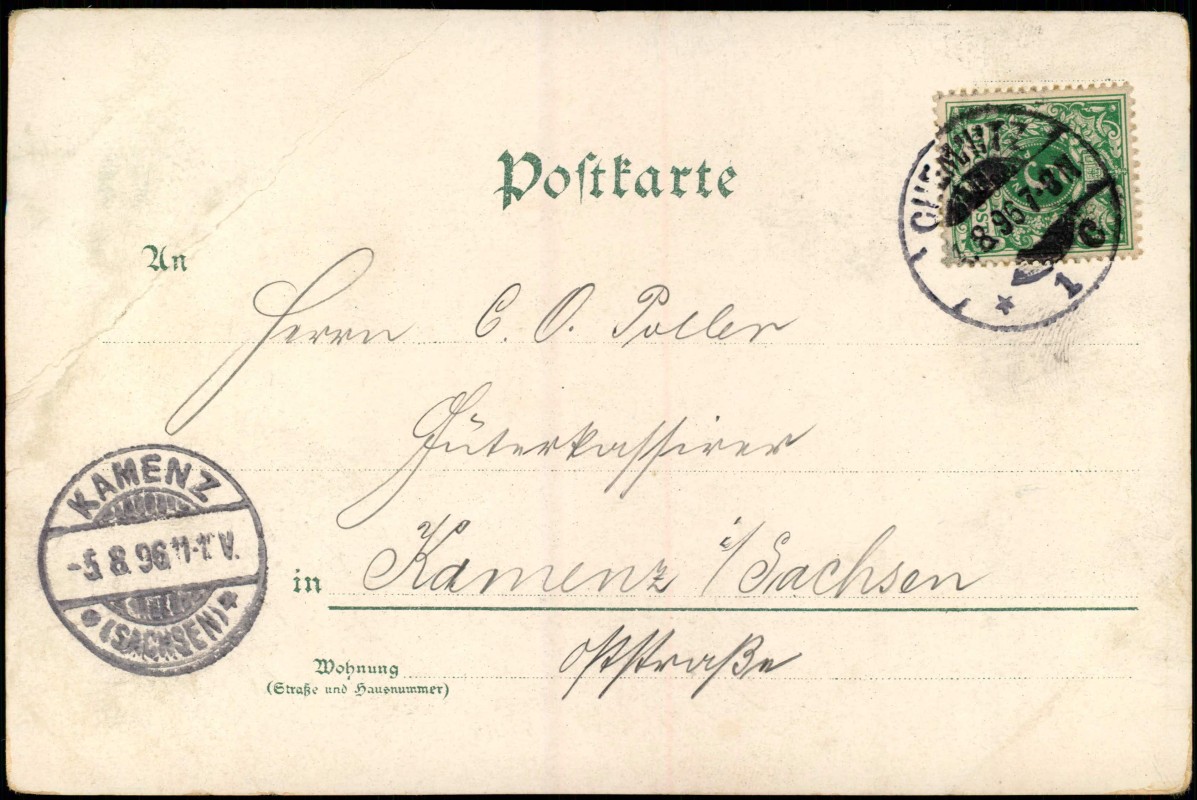 Postkarte
CHEMNITZ
.8.96 7-8 N
* 1 C
An
Herrn C. O. Poller
Güterkassirer
in Kamenz i/Sachsen
Wohnung Oststraße
(Straße und Hausnummer)
KAMENZ
-5.8.96 11-12 V.
* (SACHSEN) *